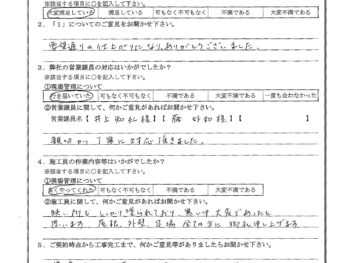 ※該当する項目に○を記入して下さい。
大変満足している 満足している 可もなく不可もなく 不満である 大変不満である
2．「1」についてのご意見をお聞かせ下さい。
希望通りの仕上がりになり、ありがとうございました。
3．弊社の営業職員の対応はいかがでしたか？
※該当する項目に○を記入して下さい。
①現場管理について
行き届いていた 可もなく不可もなく 不満である 大変不満である 一度も会わなかった
②営業職員に関して、何かご意見があればお聞かせ下さい。
営業職員名【井上 様】【藤 様】【 】
親切かつ丁寧に対応頂きました。
4．施工員の作業内容等はいかがでしたか？
※該当する項目に○を記入して下さい。
①現場管理について
良くやってくれた 可もなく不可もなく 不満である 大変不満である
②施工員に関して、何かご意見があればお聞かせ下さい。
狭い所もしっかり塗られており、暑い中大変であったと
思います。屋根、外壁、足場 全ての方に御礼申し上げます
5．ご契約時点から工事完工まで、何かご意見等がありましたらお聞かせ下さい。